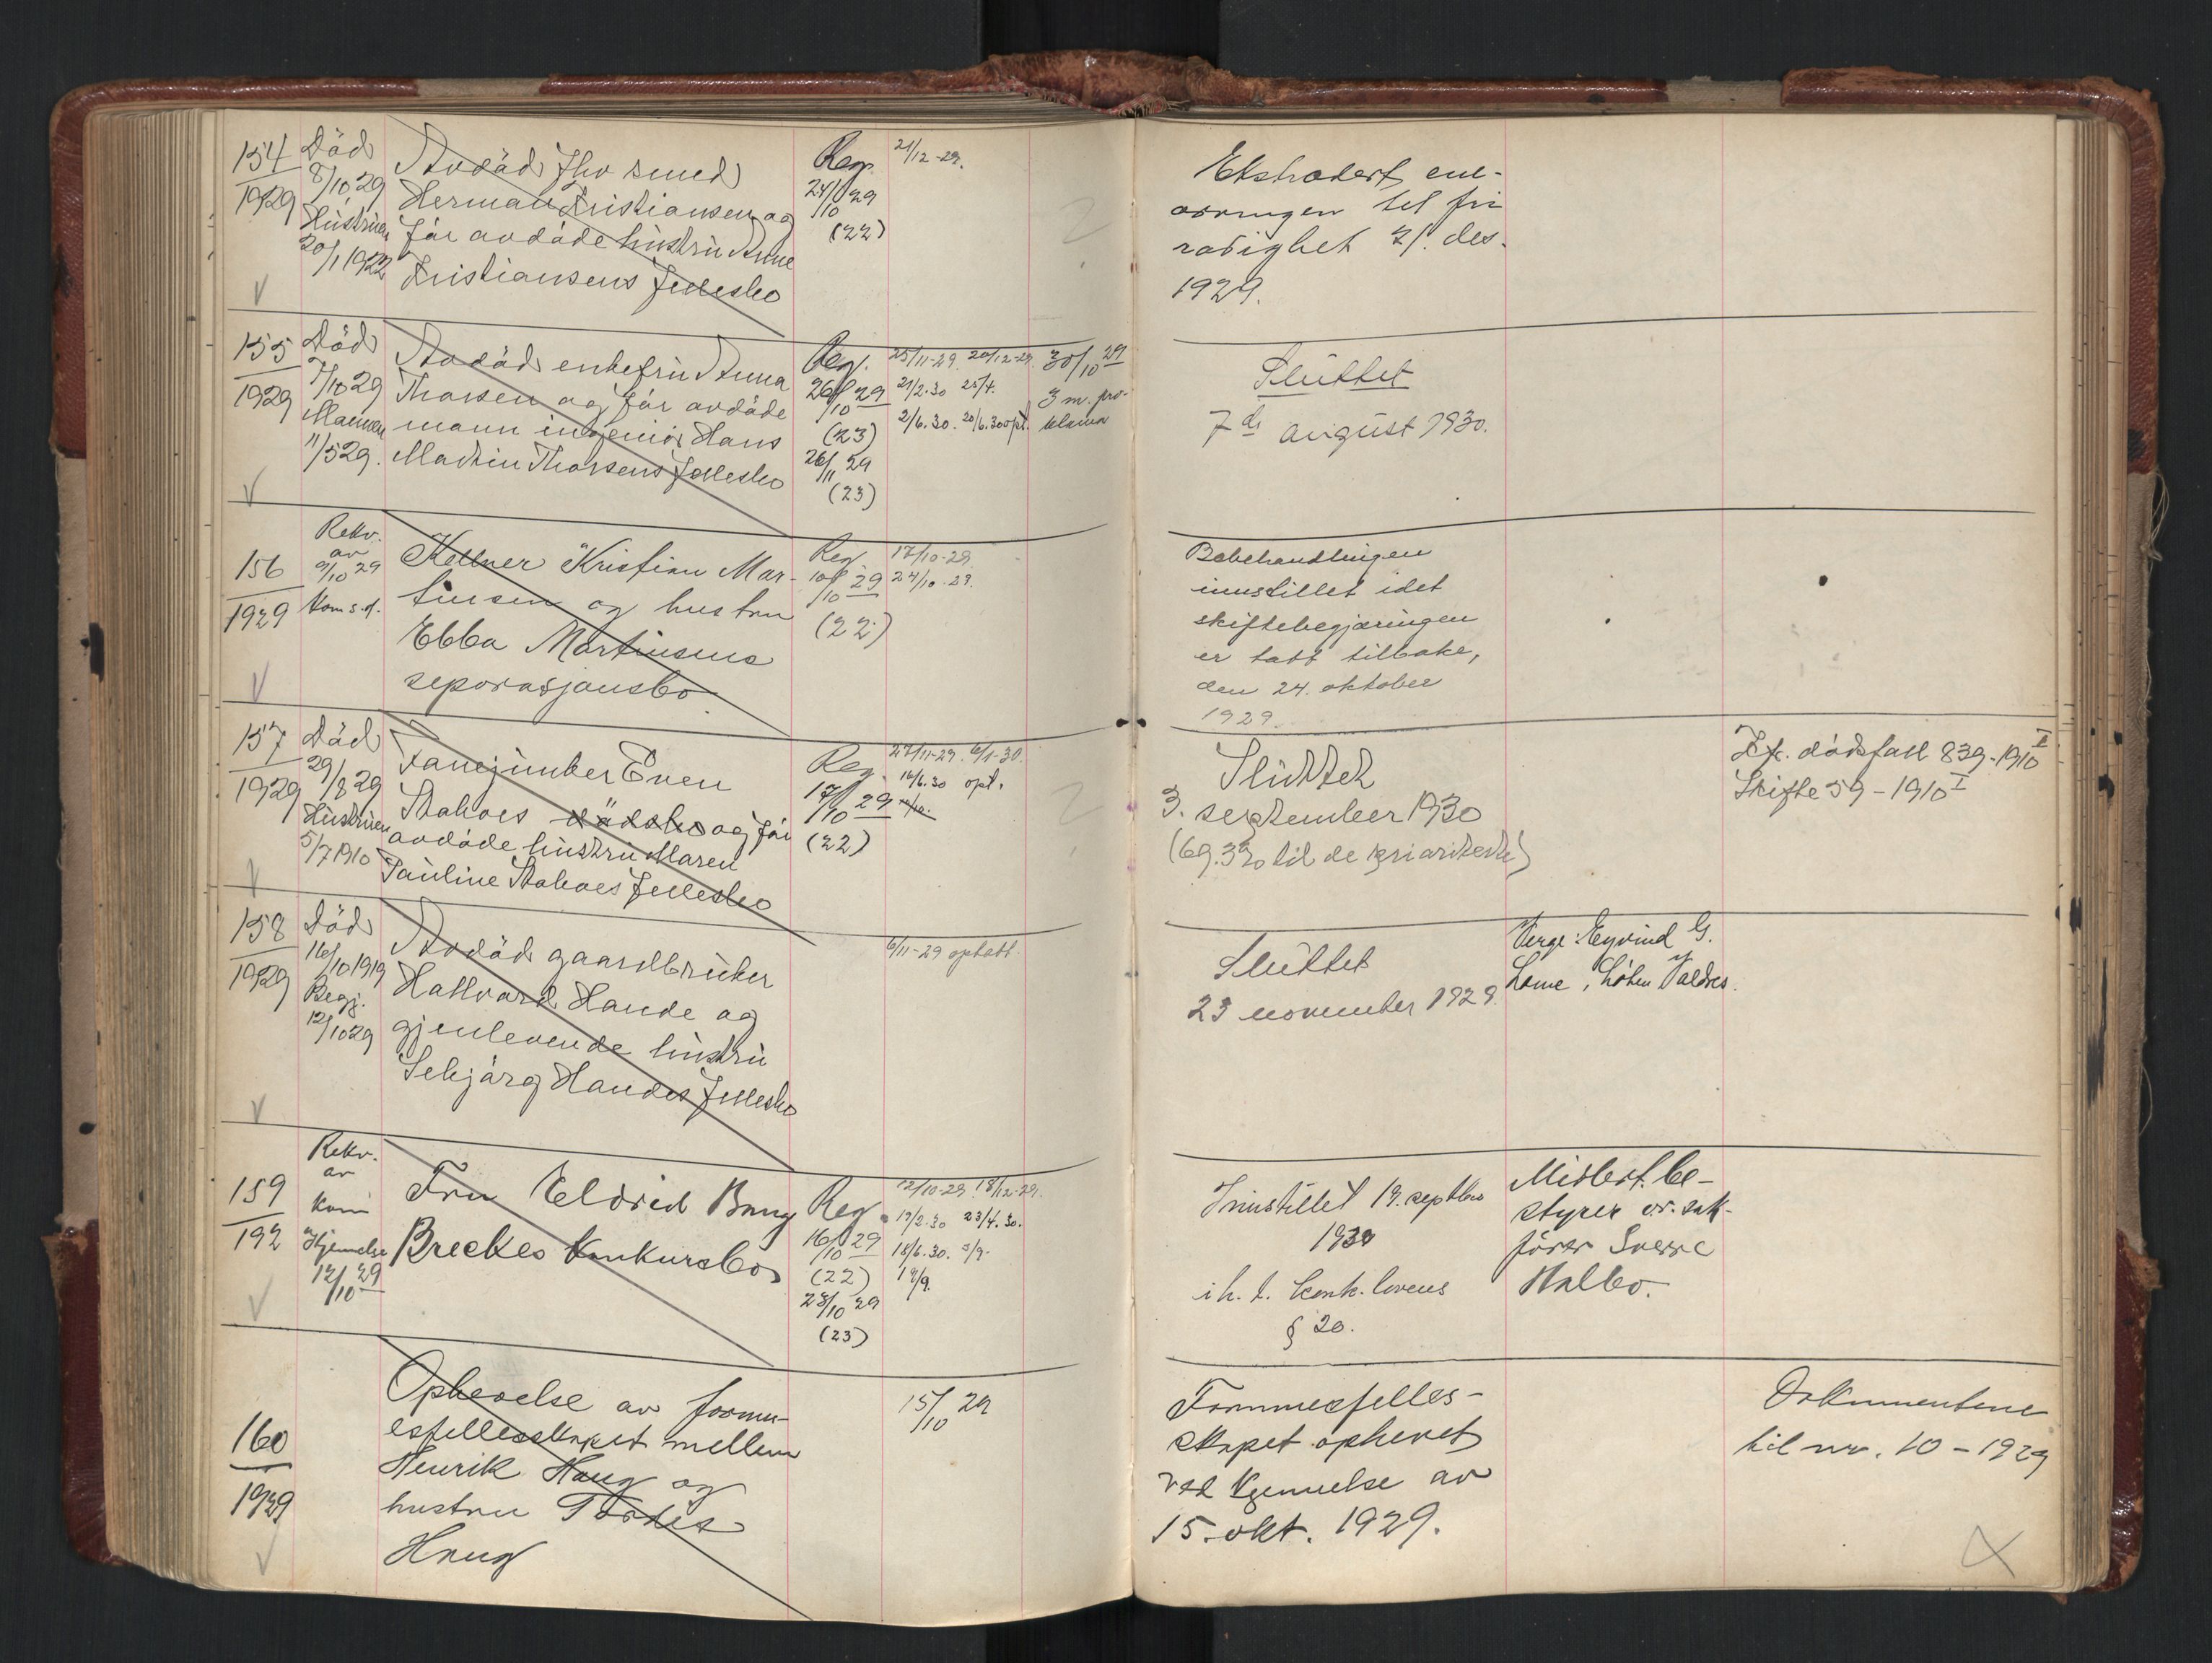 154
1929
Död
8/10 29
Hustruen
20/1 1922
Avdöd fhv smed
Herman Kristiansen og
för avdöde hustru Anne
Kristiansens fellesbo
Reg.
24/10 29
(22)
21/12-29.
Ekstradert ene-
arvingen til fri
radighet 21. des.
1929.
155
1929
Död
7/10 29
Mannen
11/5 29.
Avdöd enkefru Anna
Thorsen og för avdöde
mann ingeniör Hans
Martin Thorsens fellesbo
Reg.
26/10 29
(23)
26/11 29
(23)
25/11-29. 20/12-29.
21/2.30 25/4.
2/6.30. 20/6.30 opt.
30/10 29
3 m. pro-
klama
Sluttet
7de august 1930.
156
1929
Rekv.
av
9/10 29
Kom s.d.
Kellner Kristian Mar-
tinsen og hustru
Ebba Martinsens
separasjonsbo.
Reg.
10/10 29
(22)
17/10-29.
24/10-29.
Bobehandlingen
innstillet idet
skiftebegjæringen
er tatt tilbake,
den 24. oktober
1929.
157
1929
Död
29/8 29
Hustruen
5/7 1910
Fanejunker Even
Stahoes dödsbo og för
avdöde hustru Maren
Pauline Stahoes fellesbo
Reg.
17/10 29
(22)
27/11-29. 6/1-30.
16/6.30 opt.
Sluttet
3. september 1930
(69.3% til de prioriterte)
Jfr. dödsfall 839-1910 I
Skifte 59-1910 I
158
1929
Död
16/10 1919
Begj.
12/10 29
Avdöd gaardbruker
Hallvard Hande og
gjenlevende hustru
Sebjörg Handes fellesbo
6/11-29 optatt.
Sluttet
23 november 1929.
Verge: Eyvind G.
Lome, Lohen Valdres.
159
192
Rekv.
av
Kom
Kjennelse
12/10 29
Fru Eldrid Bang
Breckes konkursbo
Reg.
16/10 29
(22)
23/10 29
(23)
12/10-29. 18/12-29.
19/2.30 23/4.30.
18/6.30. 3/9.
17/9.
Innstillet 19. septbr
1930
i h. t. konk. lovens
§ 20.
Midlert. be-
styrer o.r. sak-
förer Sverre
Halbo.
160
1929
Ophevelse av formu-
esfellesskapet mellem
Henrik Haug og
hustru Tordis
Haug
15/10 29
Formuesfelles-
skapet ophevet
ved kjennelse av
15. okt. 1929.
Dokumentene
til nr. 10-1929